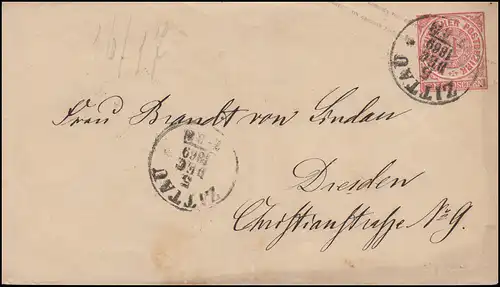 ZITTAU
5
DEC
1869
Frau Brandt von Lindau
ZITTAU
5
DEC
1869
Dresden
Christianstraße No 9.